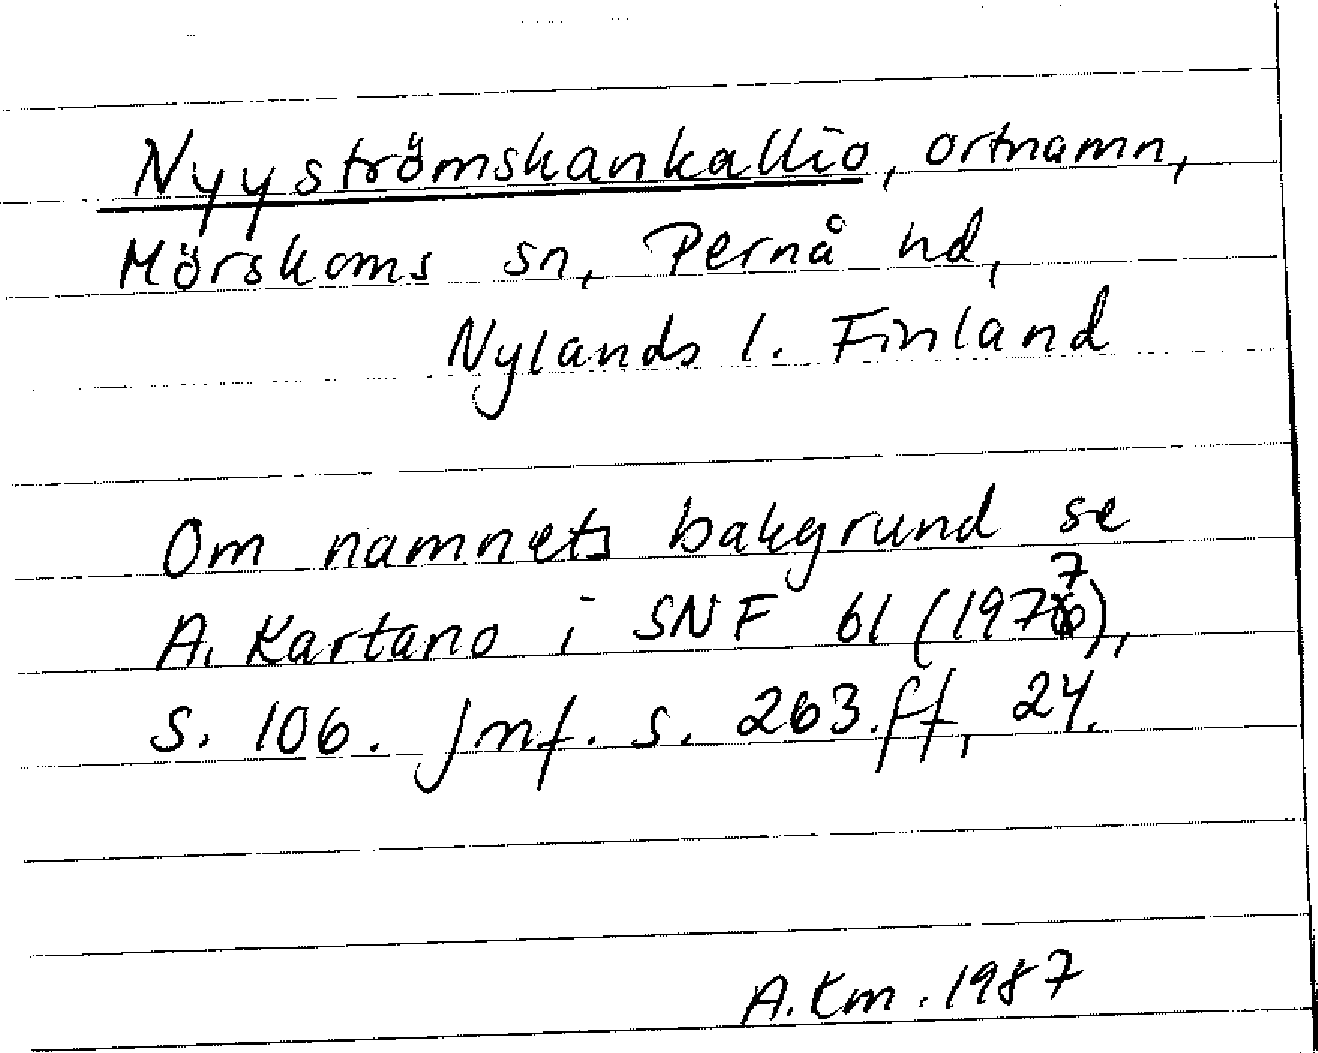 Nyyströmskankallio, ortnamn,
Mörskoms sn, Pernå hd,
Nylands l. Finland
Om namnets bakgrund se
A. Kartano i SNF 61 (1977),
s. 106. Jmf. s. 263.ff, 24.
A. Km. 1987